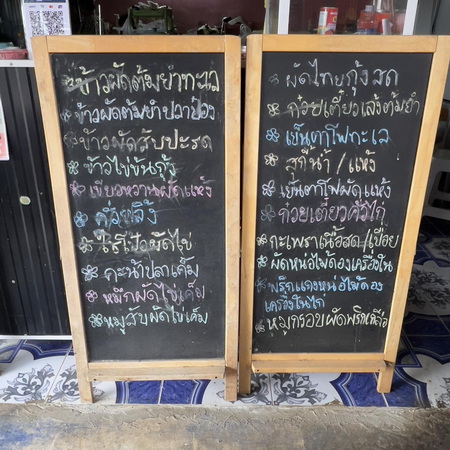 ข้าวผัดต้มยำทะเล
ข้าวผัดต้มยำปลาป๋อง
ข้าวผัดสับปะรด
ข้าวไข่ข้นกุ้ง
เขียวหวานผัดแห้ง
คั่วกลิ้ง
ไส้ตัวผัดไข่
คะน้าปลาเค็ม
หมึกผัดไข่เค็ม
หมูสับผัดไข่เค็ม
ผัดไทยกุ้งสด
ก๋วยเตี๋ยวเส้งต้มยำ
เย็นตาโฟทะเล
สุกี้น้ำ/แห้ง
เย็นตาโฟผัดแห้ง
ก๋วยเตี๋ยวคั่วไก่
กะเพราเนื้อสด/เปื่อย
ผัดหน่อไม้ดองเครื่องใน
พริกแกงหน่อไม้ดอง
เครื่องในไก่
หมูกรอบผัดพริกเกลือ